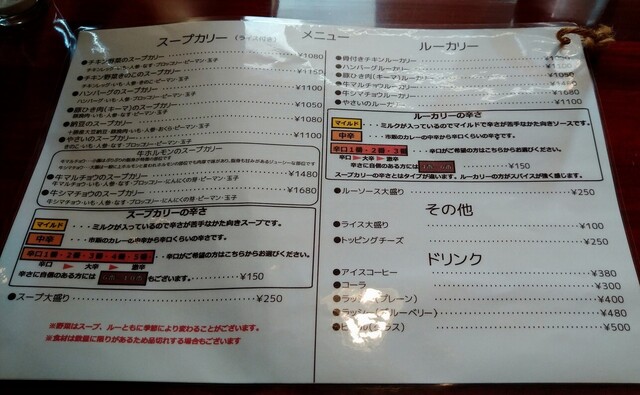 メニュー
スープカリー (ライス付き)
●チキン野菜のスープカリー ¥1080
●チキン野菜きのこのスープカリー ¥1150
●ハンバーグのスープカリー ¥1100
●豚ひき肉(キーマ)のスープカリー ¥1050
●納豆のスープカリー ¥1080
●やさいのスープカリー ¥1100
牛ホルモンのスープカリー
●牛マルチョウのスープカリー ¥1480
●牛シマチョウのスープカリー ¥1680
スープカリーの辛さ
マイルド ・・ミルクが入っているので辛さが苦手なかた向きスープです。
中辛 ・・市販のカレーの中辛から辛口くらいの辛さです。
辛口1番・2番・3番・4番・5番 ・・辛口がご希望の方はこちらからお選びください。
辛口 ▶ 大辛 ▶ 激辛
辛さに自信のある方には もございます。 ¥150
●スープ大盛り ¥250
※野菜はスープ、ルーともに季節により変わることがございます。
※食材は数量に限りがあるため品切れする場合もございます
ルーカリー
●骨付きチキンルーカリー
●ハンバーグルーカリー ¥1100
●豚ひき肉(キーマ)ルーカリー ¥1050
●牛マルチョウルーカリー ¥1480
●牛シマチョウルーカリー ¥1680
●やさいのルーカリー ¥1100
ルーカリーの辛さ
マイルド ・・ミルクが入っているのでマイルドで辛さが苦手なかた向きソースです。
中辛 ・・市販のカレーの中辛から辛口くらいの辛さです。
辛口1番・2番・3番 ・・辛口がご希望の方はこちらからお選びください。
辛口 ▶ 大辛 ▶ 激辛
辛さに自信のある方には ¥150
スープカリーの辛さとはタイプが違います。ルーカリーの方がスパイスが強く感じます。
●ルーソース大盛り ¥250
その他
●ライス大盛り ¥100
●トッピングチーズ ¥250
ドリンク
●アイスコーヒー ¥380
●コーラ ¥300
●ラッシー(プレーン) ¥400
●ラッシー(ブルーベリー) ¥480
●ビール(グラス) ¥500